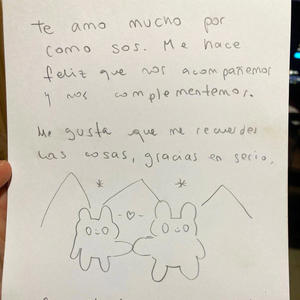 te amo mucho por
como sos. Me hace
feliz que nos acompañemos
y nos complementemos.
Me gusta que me recuerdes
las cosas, gracias en serio.